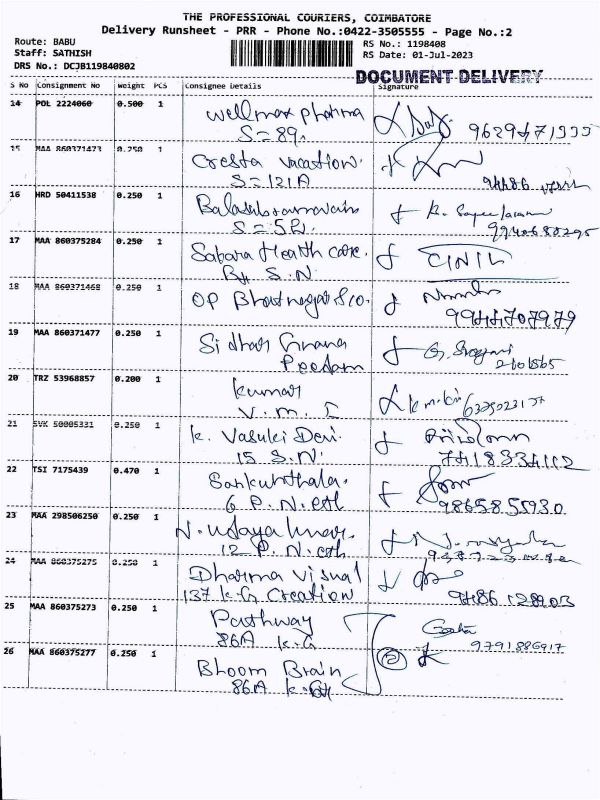 THE PROFESSIONAL COURIERS, COIMBATORE
Delivery Runsheet - PRR - Phone No.:0422-3505555 - Page No.:2
Route: BABU
Staff: SATHISH
DRS No.: DCJB119840802
RS No.: 1198408
RS Date: 01-Jul-2023
DOCUMENT DELIVERY
S No Consignment No Weight PCS Consignee Details Signature
14 POL 2224060 0.500 1 Wellmax pharma
S=89. 9629471555
15 MAA 860371473 0.250 1 Cresta vacation.
S=121A 94486
16 HRD 50411538 0.250 1
S=52.
17 MAA 860375284 0.250 1 Sabara Health care.
S.N.
18 MAA 860371468 0.250 1 OP Bhatnagar S/O.
9944707979
19 MAA 860371477 0.250 1 Sidhar Gnana
Peedam
20 TRZ 53968857 0.200 1 Kumar
V.M.
21 SVK 50005331 0.250 1 K. Vasuki Devi.
15 S.N. 7418334112
22 TSI 7175439 0.470 1 Sankunthala.
6 P.N. 9865855930
23 MAA 298506250 0.250 1 N. Udayakumar.
12 P.N.
24 MAA 860375275 0.250 1 Dharma Visual
137 K.G Creation 9486128903
25 MAA 860375273 0.250 1 Pathway
86A K.G 9791886917
26 MAA 860375277 0.250 1 Bhoom Brain
86A